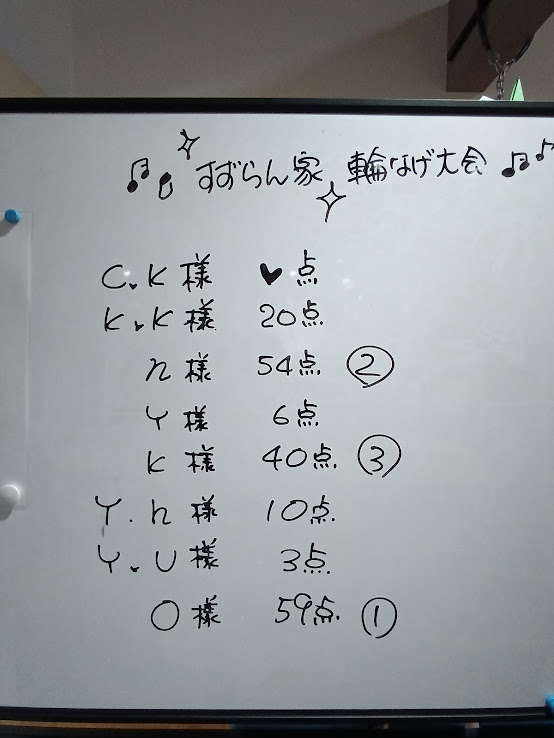 すずらん家 輪なげ大会
C.K様 ♥点
K.K様 20点
n様 54点 ②
Y様 6点
K様 40点 ③
Y.n様 10点
Y.U様 3点
O様 59点 ①